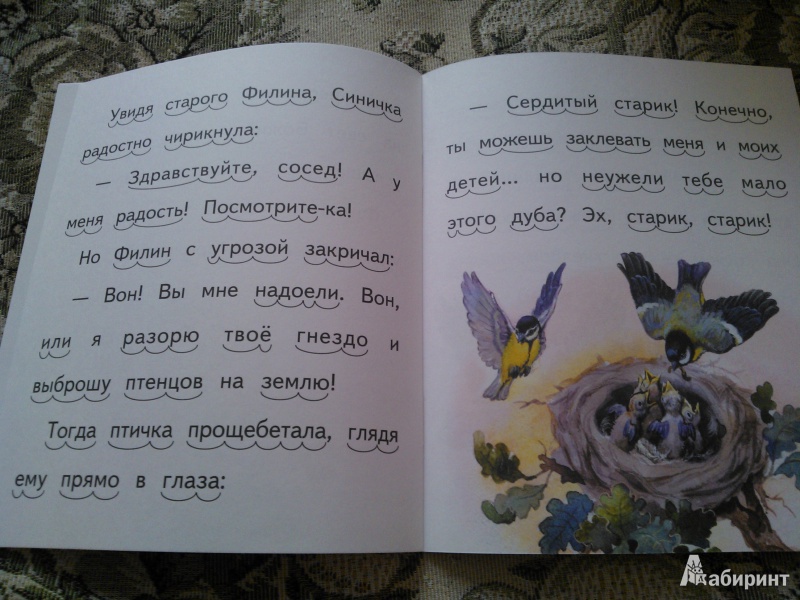 Увидя старого Филина, Синичка
радостно чирикнула:
— Здравствуйте, сосед! А у
меня радость! Посмотрите-ка!
Но Филин с угрозой закричал:
— Вон! Вы мне надоели. Вон,
или я разорю твоё гнездо и
выброшу птенцов на землю!
Тогда птичка прощебетала, глядя
ему прямо в глаза:
— Сердитый старик! Конечно,
ты можешь заклевать меня и моих
детей... но неужели тебе мало
этого дуба? Эх, старик, старик!
Лабиринт